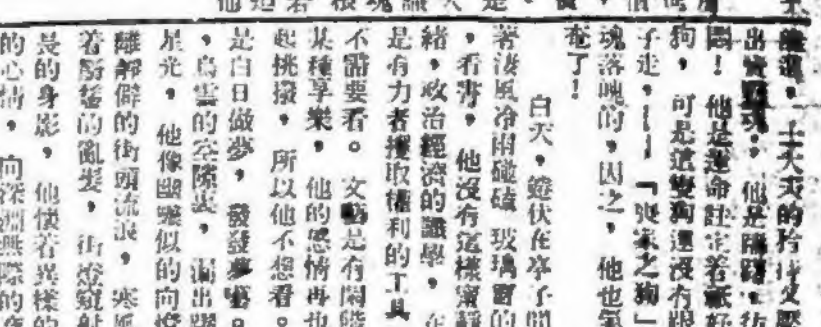 士大夫的矜
出賣靈魂；他是躊躇，彷
悶！他是運命註定若紙好
狗，可是這雙狗還沒有跟
子走，——『喪家之狗』
魂落魄的，因之，他也氣
奄了！
白天，蜷伏在亭子間
著淒風冷雨磕磕玻璃窗的
，看書，他沒有這樣甯靜
緒，政治經濟的讜學，在
是有力者攫取權利的工具
不需要看。文藝是有閑階
某種享樂，他的感情再也
起挑撥，所以他不想看。
是白日做夢，發發夢囈。
，烏雲的空隙裏，漏出
星光，他像幽靈似的向燈
離解僻的街頭流浪，寒風
着蓬鬆的亂髮，街燈
長的身影，他懷着異樣的
的心情，向深淵無際的夜